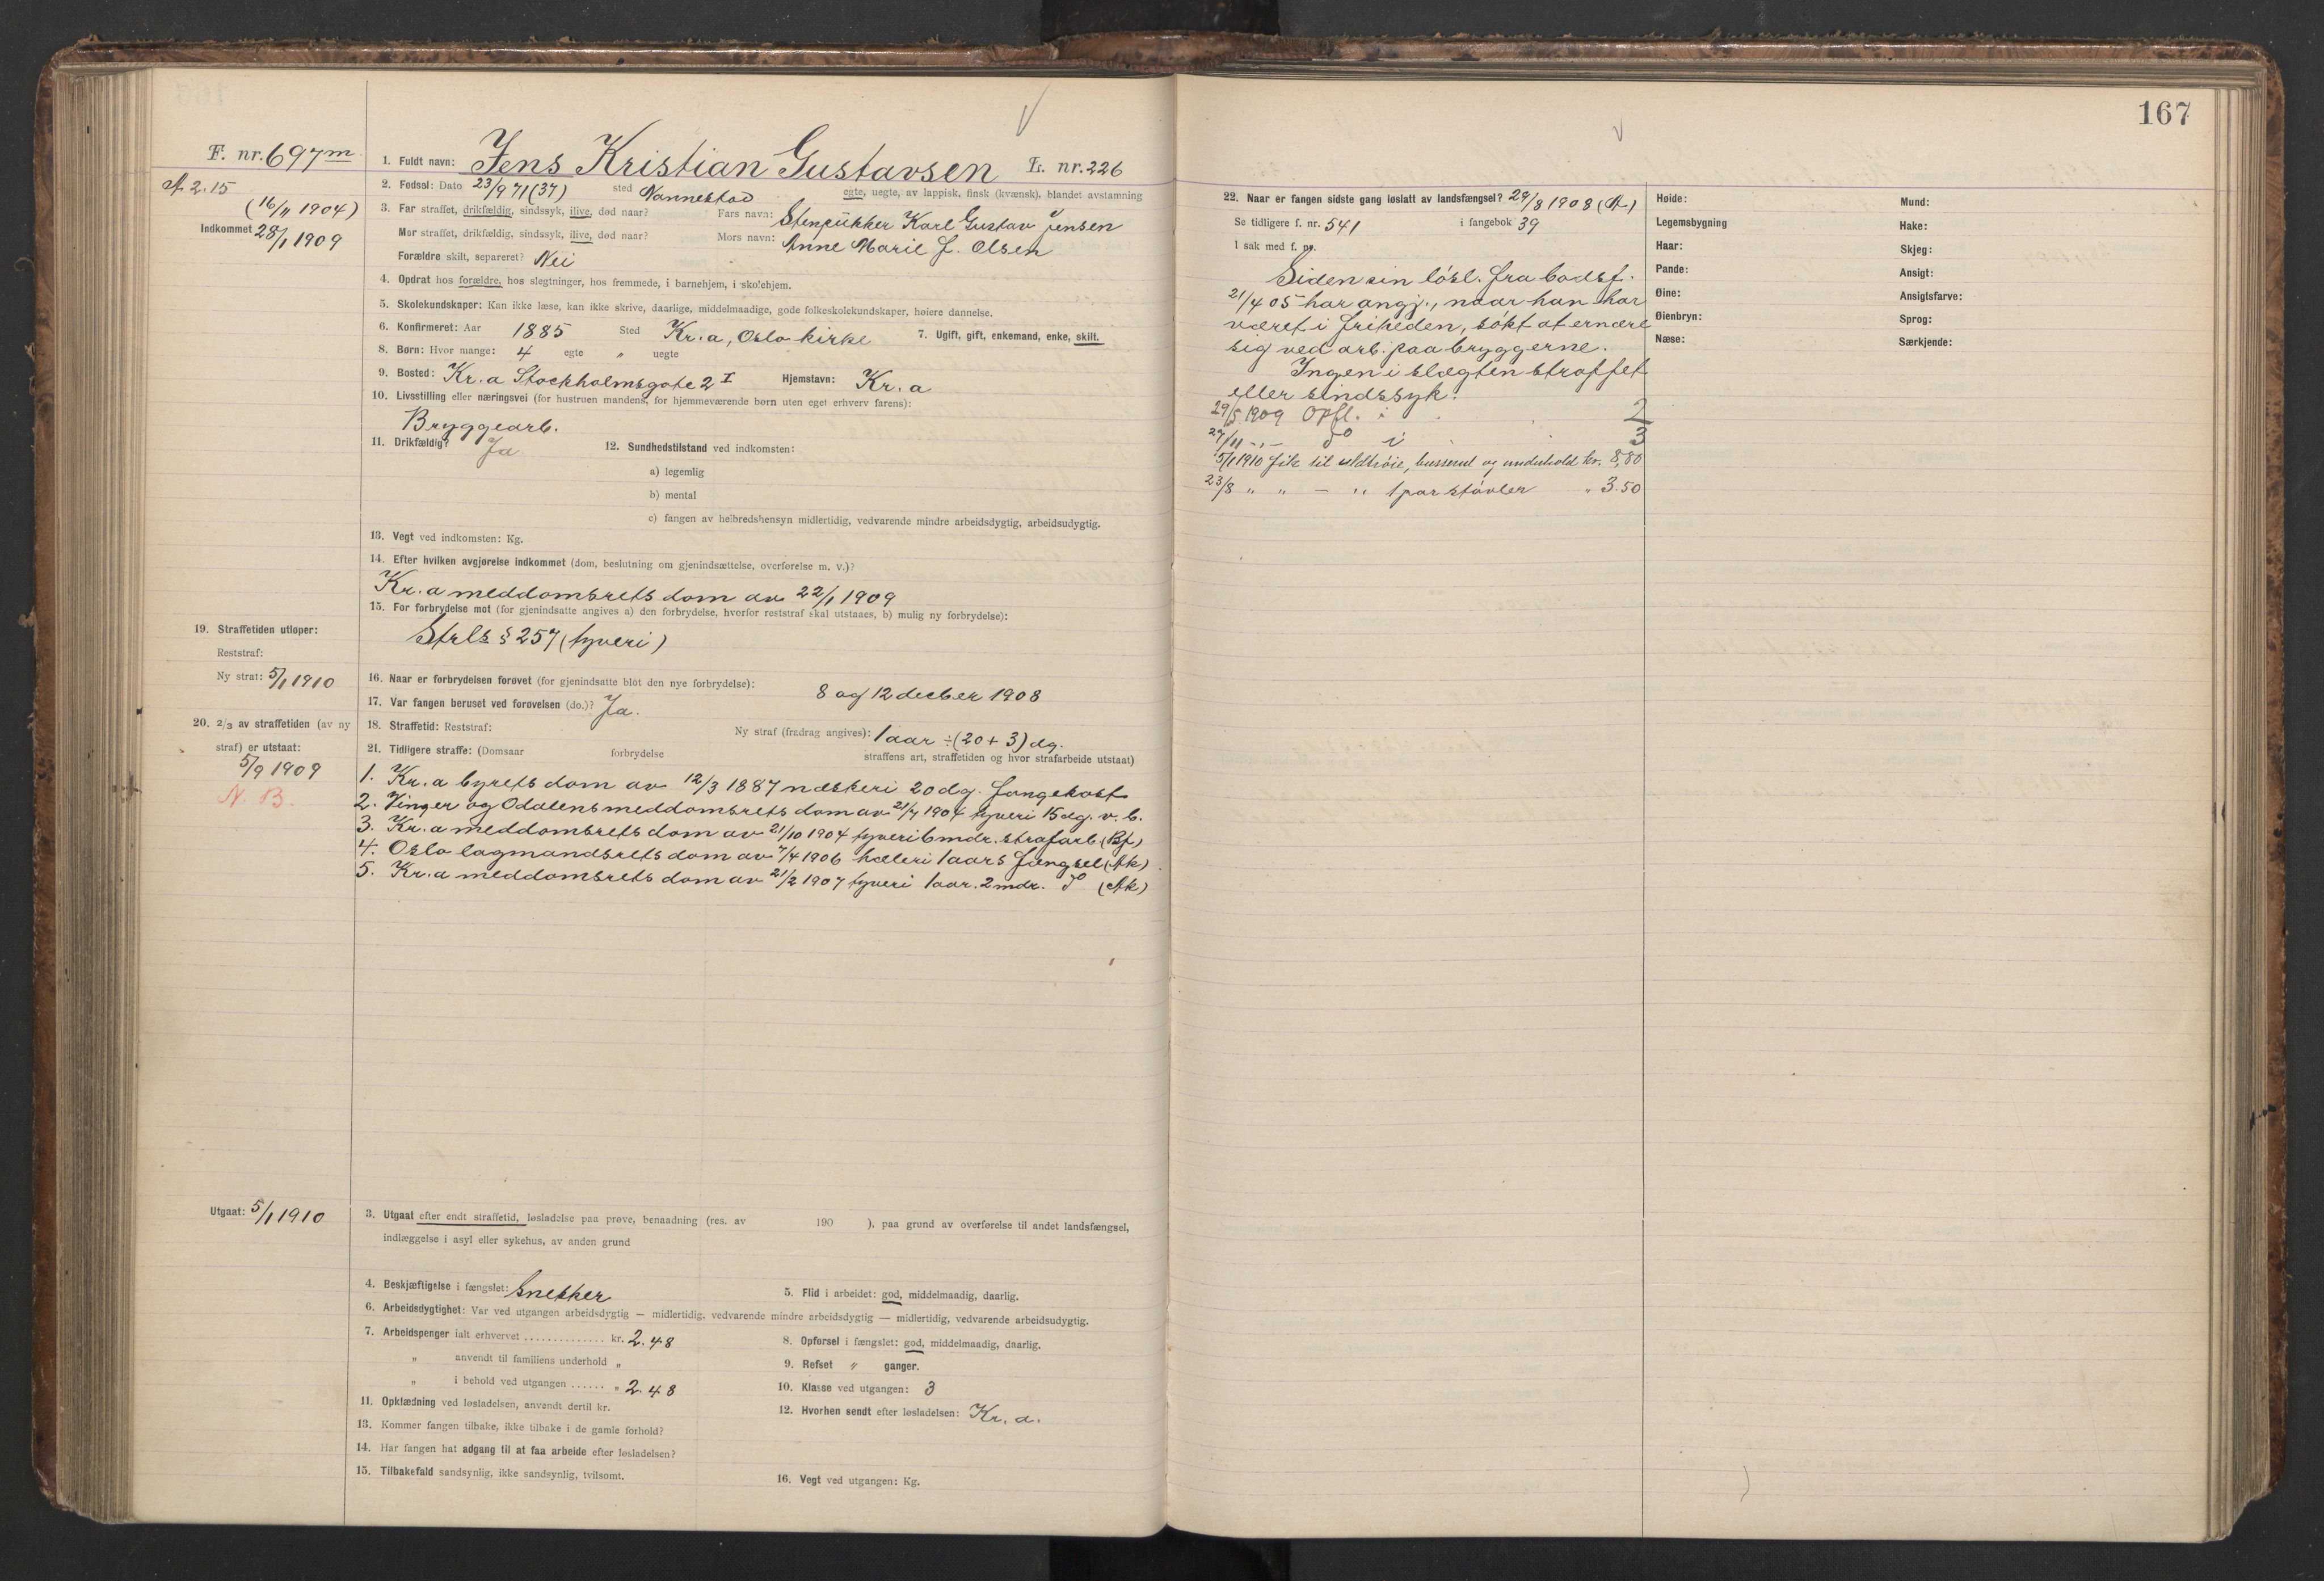 167
F. nr. 697 m
1. Fuldt navn: Jens Kristian Gustavsen L. nr. 226
A 2.15
(16/11 1904)
Indkommet 28/1 1909
2. Fødsel: Dato 23/9 71 (37) sted Nannestad egte, uegte, av lappisk, finsk (kvænsk), blandet avstamning
3. Far straffet, drikfældig, sindssyk, ilive, død naar? Fars navn: Stenpukker Karl Gustav Jensen
Mor straffet, drikfældig, sindssyk, ilive, død naar? Mors navn: Anne Marie J. Olsen
Forældre skilt, separeret? Nei
4. Opdrat hos forældre, hos slegtninger, hos fremmede, i barnehjem, i skolehjem.
5. Skolekundskaper: Kan ikke læse, kan ikke skrive, daarlige, middelmaadige, gode folkeskolekundskaper, høiere dannelse.
6. Konfirmeret: Aar 1885 Sted Kr.a, Oslo kirke 7. Ugift, gift, enkemand, enke, skilt.
8. Børn: Hvor mange: 4 egte " uegte
9. Bosted: Kr.a Stockholmsgate 2 I Hjemstavn: Kr.a
10. Livsstilling eller næringsvei (for hustruen mandens, for hjemmeværende børn uten eget erhverv farens):
Bryggearb.
11. Drikfældig? Ja 12. Sundhedstilstand ved indkomsten:
a) legemlig
b) mental
c) fangen av helbredshensyn midlertidig, vedvarende mindre arbeidsdygtig, arbeidsudygtig.
13. Vegt ved indkomsten: Kg.
14. Efter hvilken avgjørelse indkommet (dom, beslutning om gjenindsættelse, overførelse m. v.)?
Kr.a meddomsrets dom av 22/1 1909
15. For forbrydelse mot (for gjenindsatte angives a) den forbrydelse, hvorfor reststraf skal utstaaes, b) mulig ny forbrydelse):
Strls § 257 (tyveri)
19. Straffetiden utløper:
Reststraf:
Ny straf: 5/1 1910
16. Naar er forbrydelsen forøvet (for gjenindsatte blot den nye forbrydelse): 8 og 12 decber 1908
17. Var fangen beruset ved forøvelsen (do.)? Ja.
20. 2/3 av straffetiden (av ny
straf) er utstaat:
5/9 1909
N. B.
18. Straffetid: Reststraf: Ny straf (fradrag angives): 1 aar ÷ (20 + 3) dg.
21. Tidligere straffe: (Domsaar forbrydelse straffens art, straffetiden og hvor strafarbeide utstaat)
1. Kr.a byrets dom av 12/3 1887 næskeri 20 dg. fangekost
2. Vinger og Odalens meddomsrets dom av 21/7 1904 tyveri 15 dg. v. b.
3. Kr.a meddomsrets dom av 21/10 1904 tyveri 6 mdr. strafarb (Bf)
4. Oslo lagmandsrets dom av 7/4 1906 hæleri 1 aars fængsel (Ak)
5. Kr.a meddomsrets dom av 21/2 1907 tyveri 1 aar. 2 mdr. do (Ak)
Utgaat: 5/1 1910
3. Utgaat efter endt straffetid, løsladelse paa prøve, benaadning (res. av 190 ), paa grund av overførelse til andet landsfængsel,
indlæggelse i asyl eller sykehus, av anden grund
4. Beskjæftigelse i fængslet: Snekker 5. Flid i arbeidet: god, middelmaadig, daarlig.
6. Arbeidsdygtighet: Var ved utgangen arbeidsdygtig — midlertidig, vedvarende mindre arbeidsdygtig — midlertidig, vedvarende arbeidsudygtig.
7. Arbeidspenger ialt erhvervet .............. kr. 2.48 8. Opførsel i fængslet: god, middelmaadig, daarlig.
" anvendt til familiens underhold " 9. Refset " ganger.
" i behold ved utgangen ...... " 2.48 10. Klasse ved utgangen: 3
11. Opklædning ved løsladelsen, anvendt dertil kr. 12. Hvorhen sendt efter løsladelsen: Kr. a.
13. Kommer fangen tilbake, ikke tilbake i de gamle forhold?
14. Har fangen hat adgang til at faa arbeide efter løsladelsen?
15. Tilbakefald sandsynlig, ikke sandsynlig, tvilsomt. 16. Vegt ved utgangen: Kg.
22. Naar er fangen sidste gang løslatt av landsfængsel? 29/8 1908 (A)
Se tidligere f. nr. 541 i fangebok 39
I sak med f. nr.
Siden sin løsl. fra bodsf.
21/4 05 har angj., naar han har
været i friheden, søkt at ernære
sig ved arb. paa bryggerne.
Ingen i slægten straffet
eller sindssyk.
29/5 1909 Opfl. i 2
27/11 -"- do i 3
5/1 1910 fik til uldtrøie, busserul og underhold kr. 8,80
23/8 " " — " 1 par støvler " 3.50
Høide: Mund:
Legemsbygning Hake:
Haar: Skjeg:
Pande: Ansigt:
Øine: Ansigtsfarve:
Øienbryn: Sprog:
Næse: Særkjende: